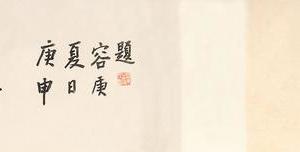 庚申
夏日
容庚
題